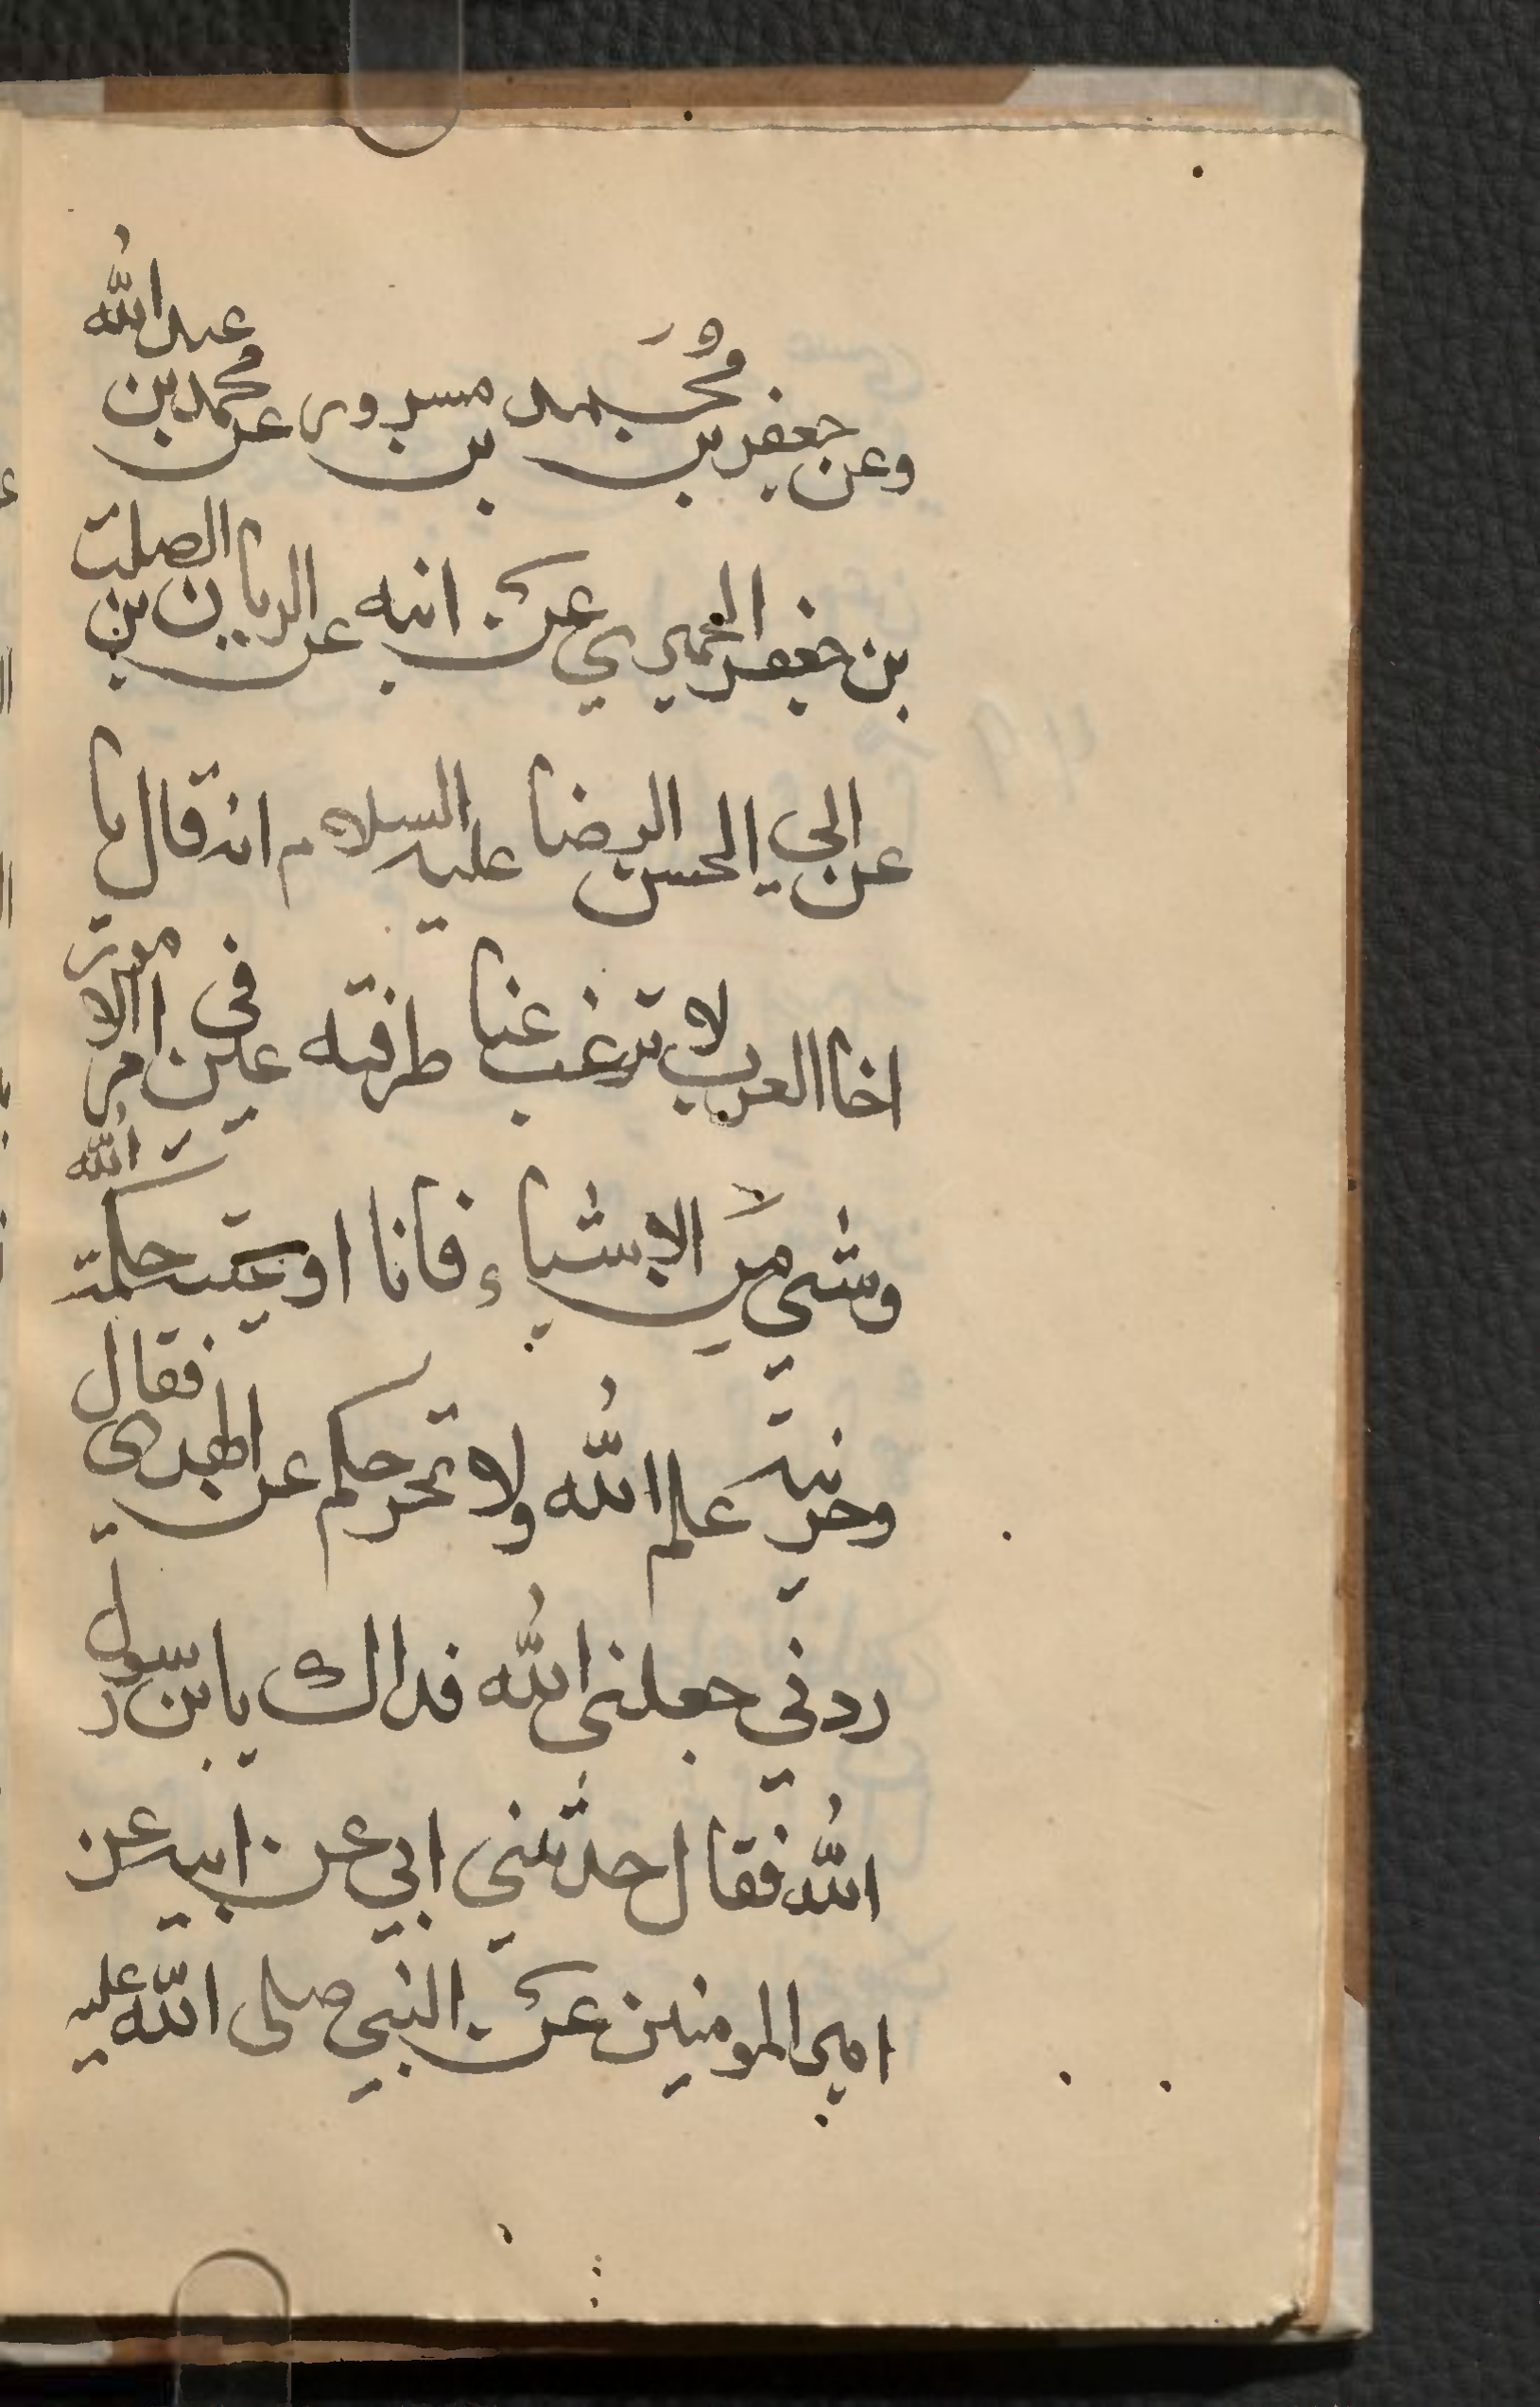 وعن جعفر بن محمد بن مسرور عن محمد بن عبد الله
بن جعفر الحميري عن ابيه عن الريان بن الصلت
عن ابي الحسن الرضا عليه السلام انه قال يا
اخا العرب لا ترغب عنا طرفة عين في امر الامور
وشي من الاشياء فانا اوعيت حكمة الله
وخزنة علم الله ولا تخرجكم عن الهدى فقال
زدني جعلني الله فداك يا بن رسول
الله فقال حدثني ابي عن ابيه عن
امير المومنين عن النبي صلى الله عليه